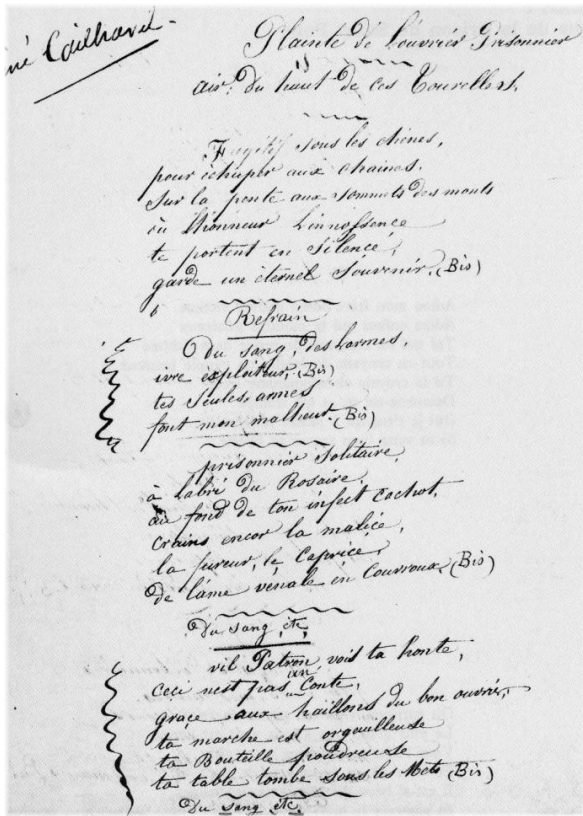 né Cailhavel
Plainte de l'ouvrier Prisonnier
air: Du haut de ces Tourelles.
Fugitif sous les chênes,
pour échaper aux chaines.
Sur la pente aux sommets des monts
où l'honneur L'innossence
te portent en silence,
garde un éternel Souvenir. (Bis)
Refrain
O du sang, des Larmes,
ivre exploiteur, (Bis)
tes seules armes
font mon malheur. (Bis)
prisonnier Solitaire,
à Labri du Rosaire,
au fond de ton infect cachot,
Crains encor la malice,
la fureur, le Caprice,
De l'ame vénale en Courroux, (Bis)
Du sang, etc,
vil Patron, vois ta honte,
Ceci n'est pas un Conte,
grâce aux haillons du bon ouvrier,
ta marche est orgueilleuse
ta Bouteille poudreuse
ta table tombe sous les Mets (Bis)
Du sang etc.